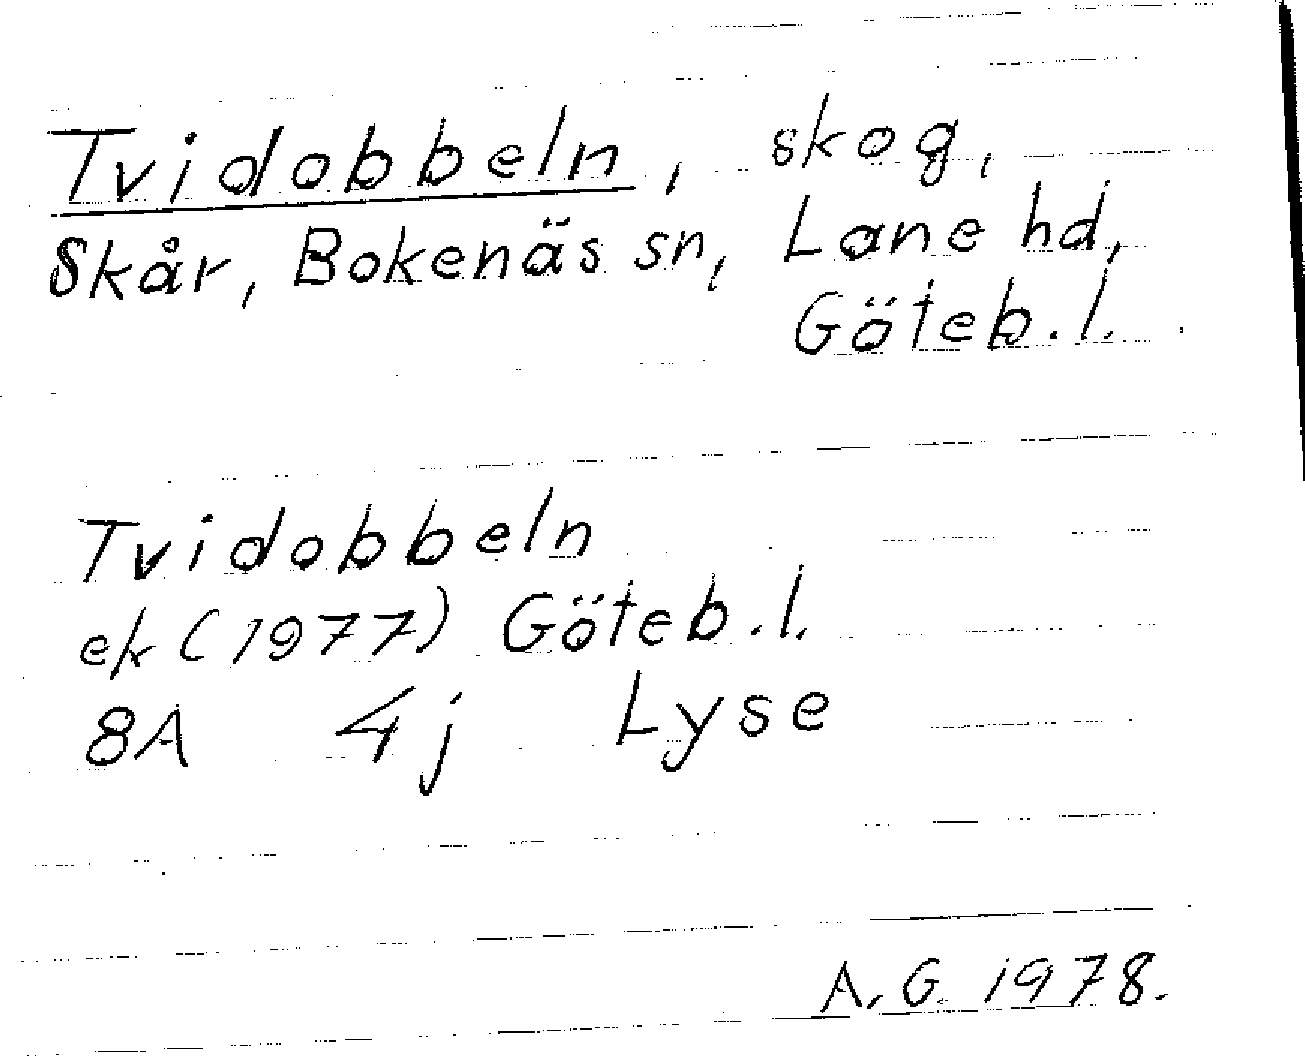 Tvidobbeln, skog,
Skår, Bokenäs sn, Lane hd,
Göteb.l.
Tvidobbeln
ek (1977) Göteb.l.
8A 4j Lyse
A.G. 1978.